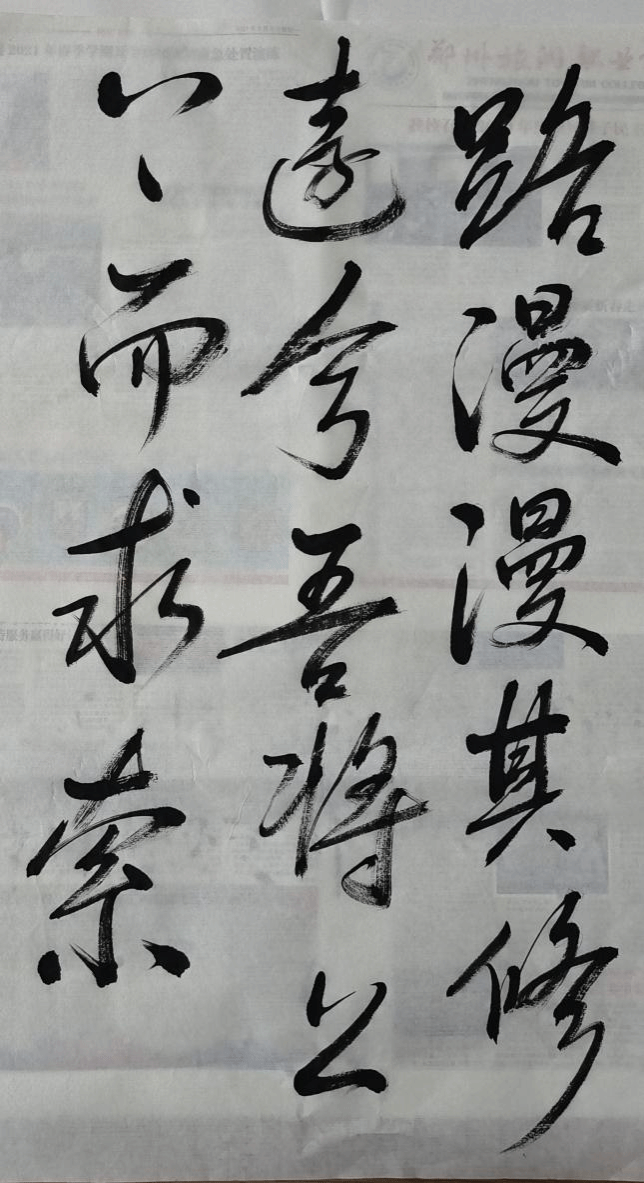 路漫漫其修
遠兮吾将上
下而求索